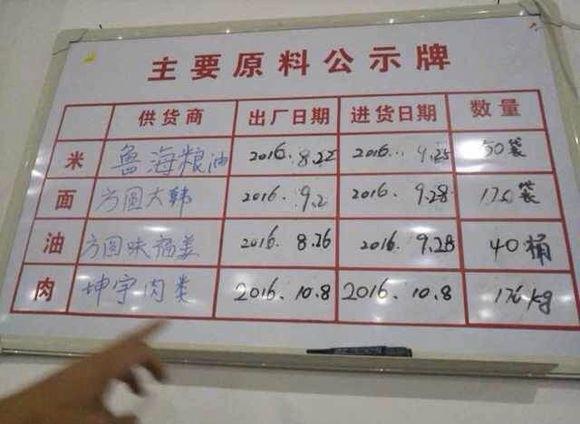 主要原料公示牌
供货商 出厂日期 进货日期 数量
米 鲁海粮油 2016.8.22 2016.9.25 50袋
面 方圆大韩 2016.9.2 2016.9.28 袋
油 方圆味福美 2016.8.26 2016.9.28 40桶
肉 坤宇肉类 2016.10.8 2016.10.8 176kg